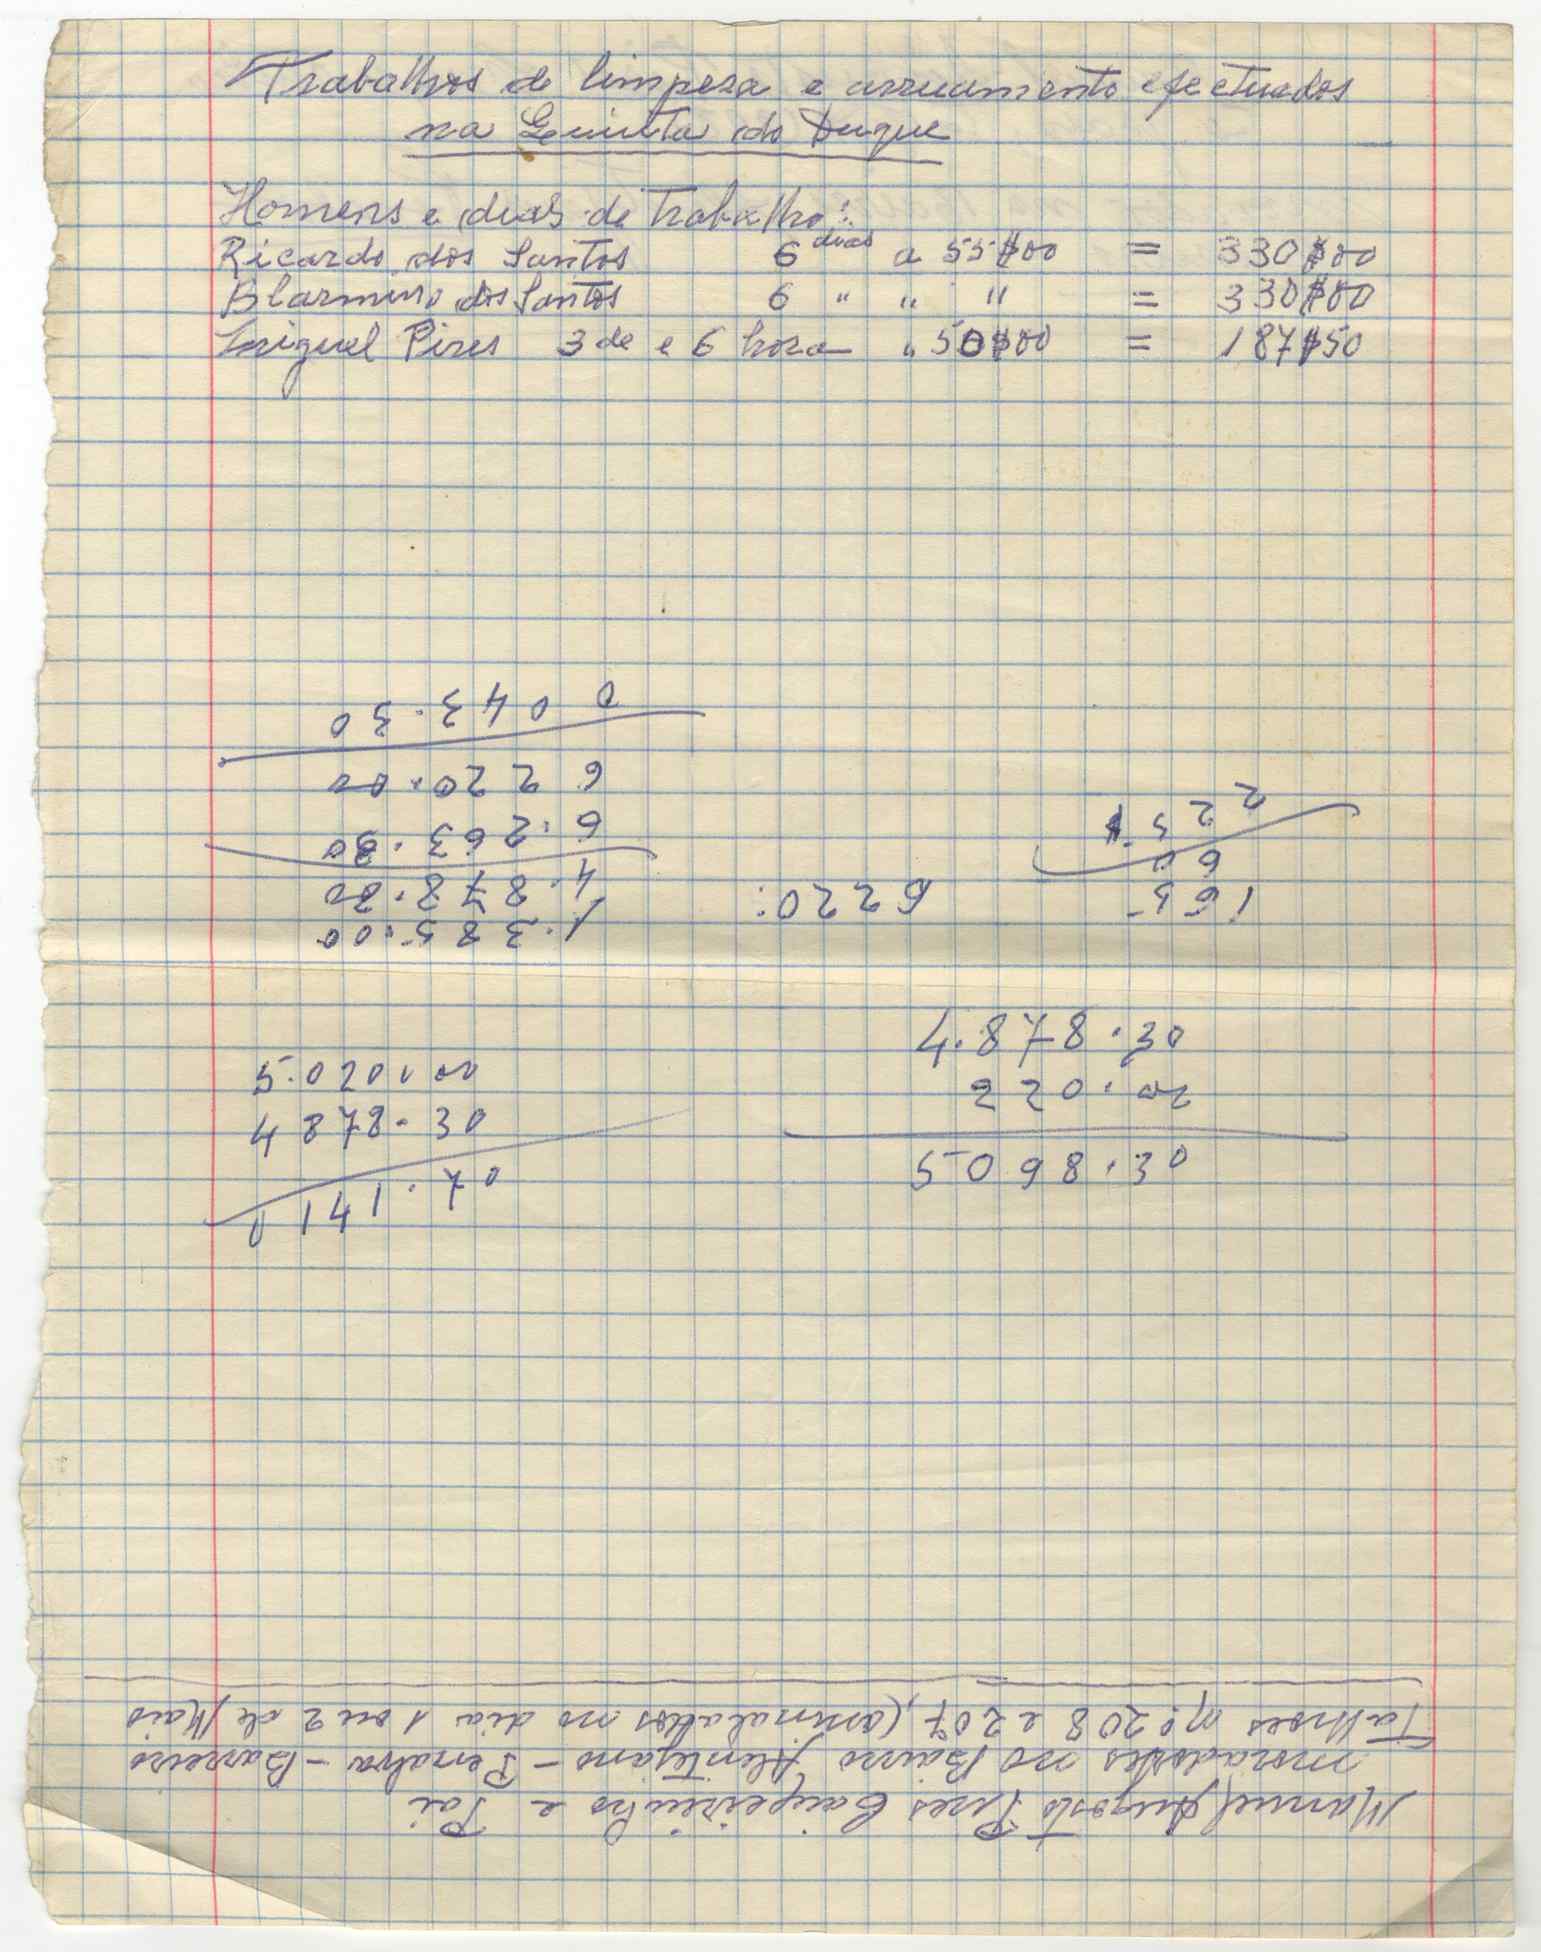 Trabalhos de limpesa e arruamento efectuados
na Quinta do Duque
Homens e dias de trabalho:
Ricardo dos Santos 6 dias a 55$00 = 330$00
Blarmino dos Santos 6 " " " = 330$00
Miguel Pires 3 de e 6 hora " 50$00 = 187$50
4.878.30
220.00
5098.30
5.020.00
4878.30
0141.70
165
60
225
2
6220:
1.385.00
4.878.30
6.263.30
6220.00
0043.30
Manuel Augosto Peres e Pai
moradores no Bairro Alentejano - Penalva - Barreiro
Talhoes nº 208 e 207, no dia 1 ou 2 de Maio